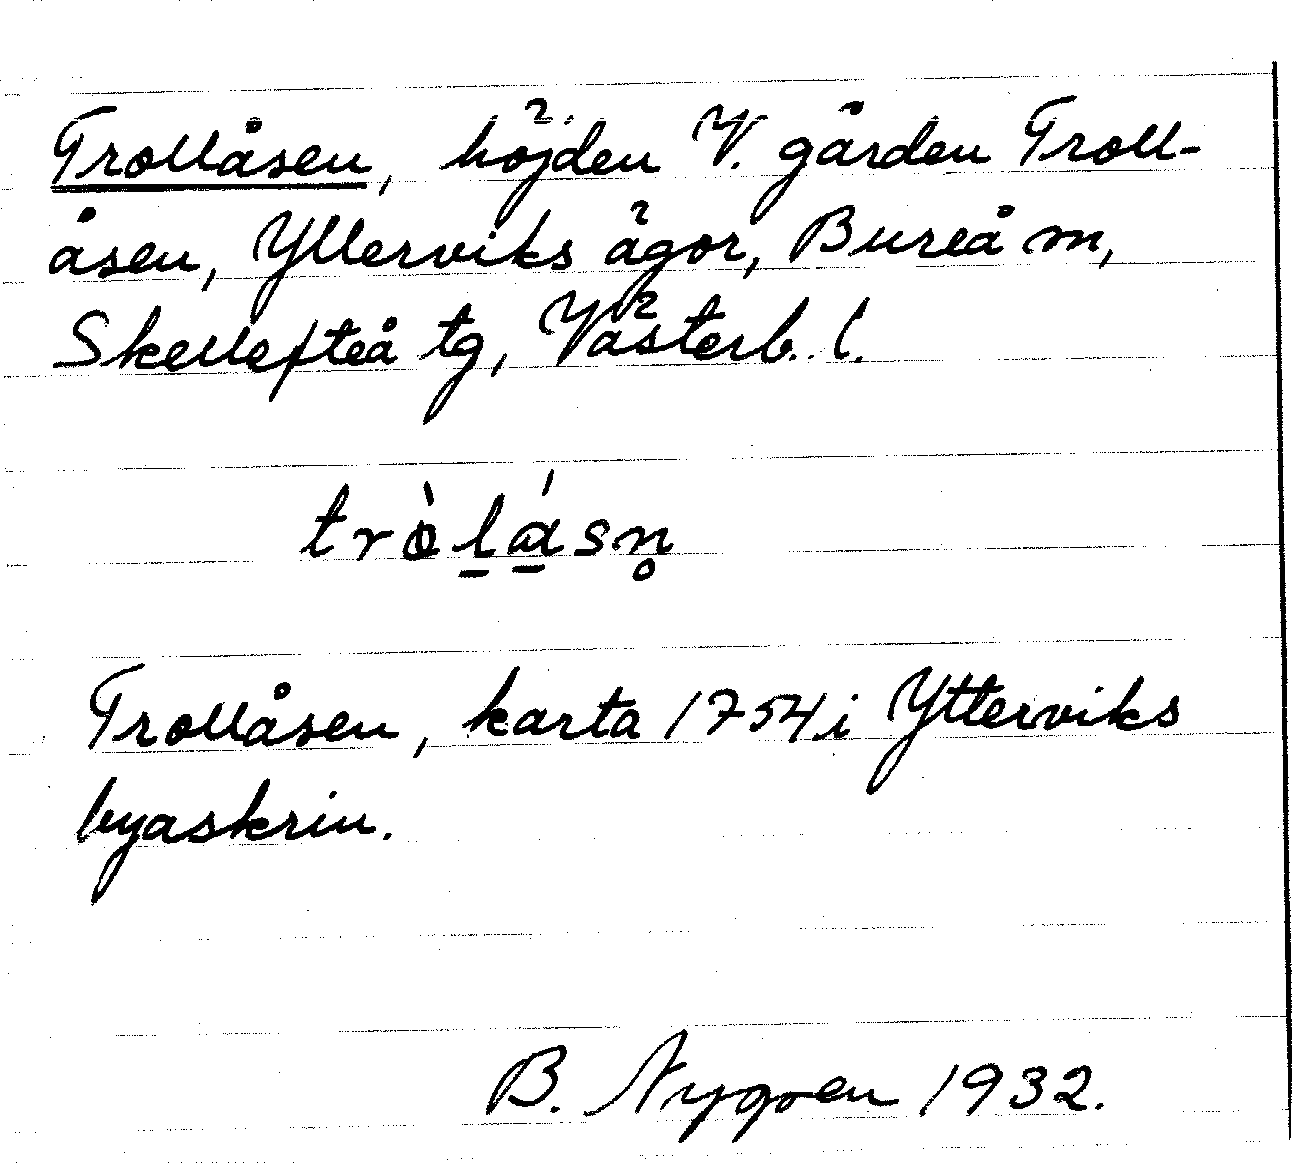 Trollåsen, höjden V. gården Troll-
åsen, Ytterviks ägor, Bureå m,
Skellefteå tg, Västerb. l.
trò̀lá̱sn̥
Trollåsen, karta 1754 i Ytterviks
byaskrin.
B. Nygren 1932.